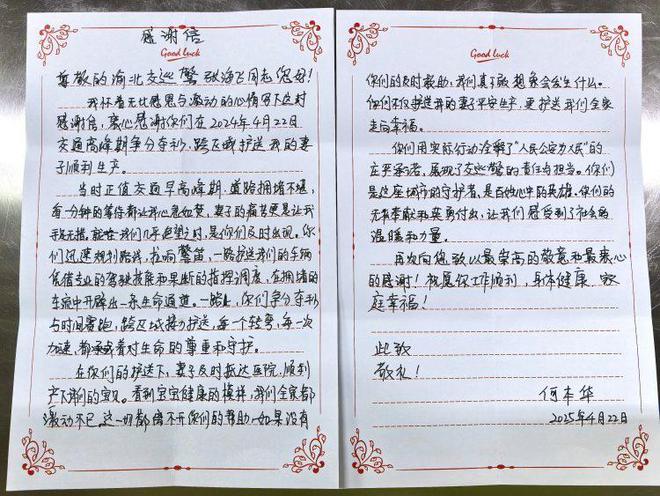 感谢信
Good Luck
尊敬的渝北交巡警张海飞同志您好!
我怀着无比感恩与激动的心情写下这封
感谢信,衷心感谢你们在2024年4月22日
交通高峰期争分夺秒、跨区域护送我的妻
子顺利生产。
当时正值交通早高峰期,道路拥堵不堪,
每一分钟的等待都让我心急如焚,妻子的痛苦更是让我
手足无措,就在我们几乎绝望之时,是你们及时出现,你
们迅速规划路线,拉响警笛,一路护送我们的车辆
凭借专业的驾驶技能和果断的指挥调度,在拥堵的
车流中开辟出一条生命通道。一路上,你们争分夺秒
与时间赛跑,跨区域接力护送,每一个转弯,每一次
加速,都承载着对生命的尊重和守护。
在你们的护送下,妻子及时抵达医院,顺利
产下我们的宝贝。看到宝宝健康的模样,我们全家都
激动不已,这一切都离不开你们的帮助,如果没有
Good Luck
你们的及时救助,我们真不敢想象会发生什么。
你们不仅护送我的妻子平安生产,更护送我们全家
走向幸福。
你们用实际行动诠释了"人民公安为人民"的
庄严承诺,展现了交巡警的责任与担当。你们
是这座城市的守护者,是百姓心中的英雄。你们的
无私奉献和英勇付出,让我们感受到了社会的
温暖和力量。
再次向您致以最崇高的敬意和最衷心
的感谢!祝愿你工作顺利,身体健康 家
庭幸福!
此致
敬礼!
何本华
2025年4月22日